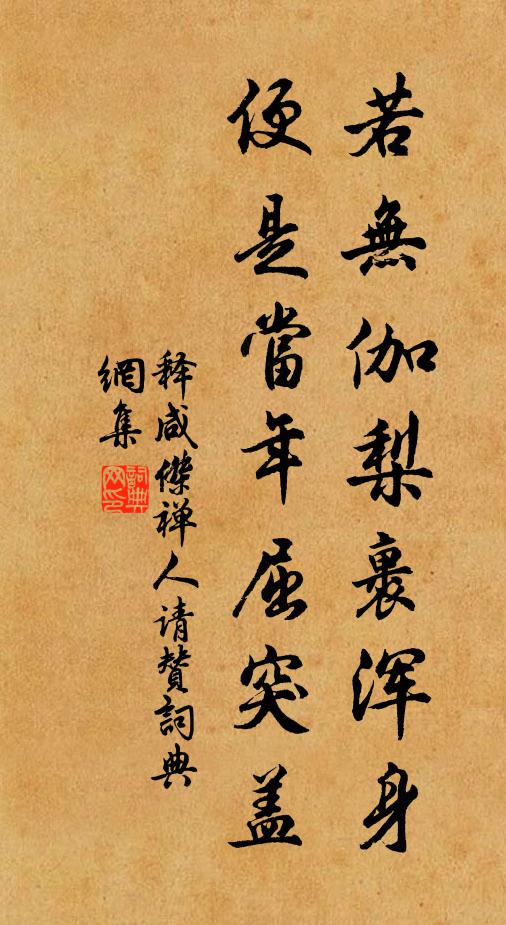 若無伽梨裹浑身
便是當年屈突盖
释咸傑禅人请赞詞典
網集
詞典
网印